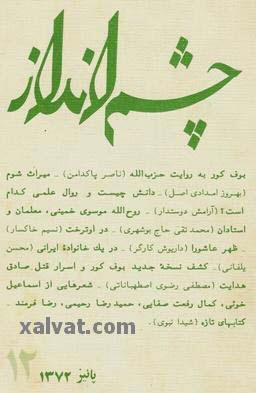 چشم‌انداز
بوف کور به روایت حزب‌الله (ناصر پاکدامن) ـ میراث شوم
(بهروز امدادی اصل) ـ دانش چیست و روال علمی کدام
است؟ (آرامش دوستدار) ـ روح‌الله موسوی خمینی، معلمان و
استادان (محمد تقی حاج بوشهری) ـ در اوترخت (نسیم خاکسار)
ـ ظهر عاشورا (داریوش کارگر) ـ در یك خانوادهٔ ایرانی (محسن
یلفانی) ـ کشف نسخهٔ جدید بوف کور و اسرار قتل صادق
هدایت (مصطفی رضوی اصطهباناتی) ـ شعرهایی از اسماعیل
خوئی، کمال رفعت صفایی، حمید رضا رحیمی، رضا فرمند ـ
کتابهای تازه (شیدا نبوی).
xalvat.com
۱۲
پائیز ۱۳۷۲